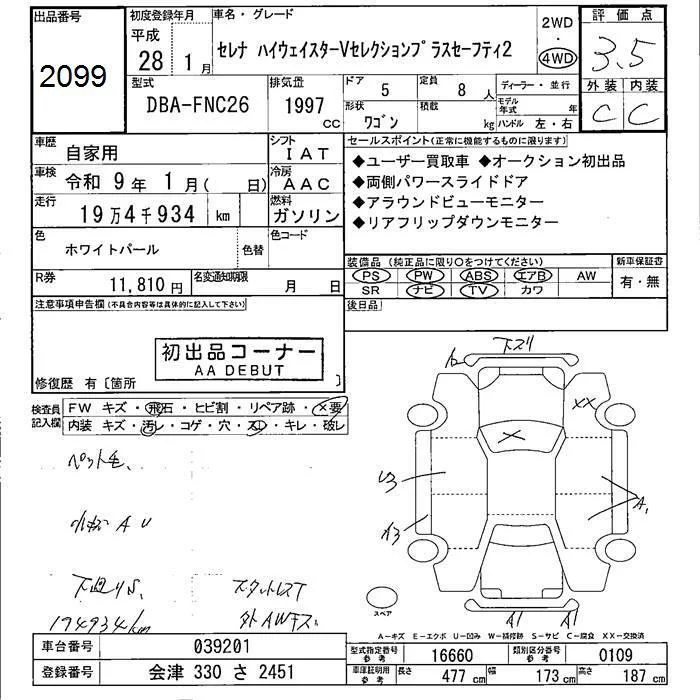 出品番号 初度登録年月 車名・グレード 評価点
2099 平成 28 1月 セレナ ハイウェイスターVセレクションプラスセーフティ2 2WD ・ 4WD 3.5
型式 DBA-FNC26 排気量 1997 cc ドア 5 定員 8人 ディーラー・並行 外装 内装
形状 ワゴン 積載 kg モデル年式 年 ハンドル 左・右 C C
車歴 自家用 シフト IAT セールスポイント(正常に機能するものに限ります)
車検 令和 9年 1月( 日) 冷房 AAC ◆ユーザー買取車 ◆オークション初出品
◆両側パワースライドドア
走行 19万4千934 km 燃料 ガソリン ◆アラウンドビューモニター
◆リアフリップダウンモニター
色 ホワイトパール 色替 色コード
装備品(純正品に限り○をつけてください) 新車保証書
R券 11,810円 名変通知期限 月 日 PS PW ABS エアB AW 有・無
SR ナビ TV カワ
注意事項申告欄(不具合内容等は具体的に記入して下さい) 後日品
初出品コーナー
AA DEBUT
修復歴 有〔箇所 〕
検査員記入欄 FW キズ・飛石・ヒビ割・リペア跡・×要
内装 キズ・汚レ・コゲ・穴・スレ・キレ・破レ
下スリ
XX
X
ペット毛
A1
小キズ A U
下廻りS スタットレスT
194934km 外AWキズ
スペア
A1 A1
A―キズ E―エクボ U―凹み W―補修跡 S―サビ C―腐食 XX―交換済
車台番号 039201 型式指定番号 参考 16660 類別区分番号 参考 0109
登録番号 会津 330 さ 2451 車庫証明用 参考 長さ 477cm 幅 173cm 高さ 187cm